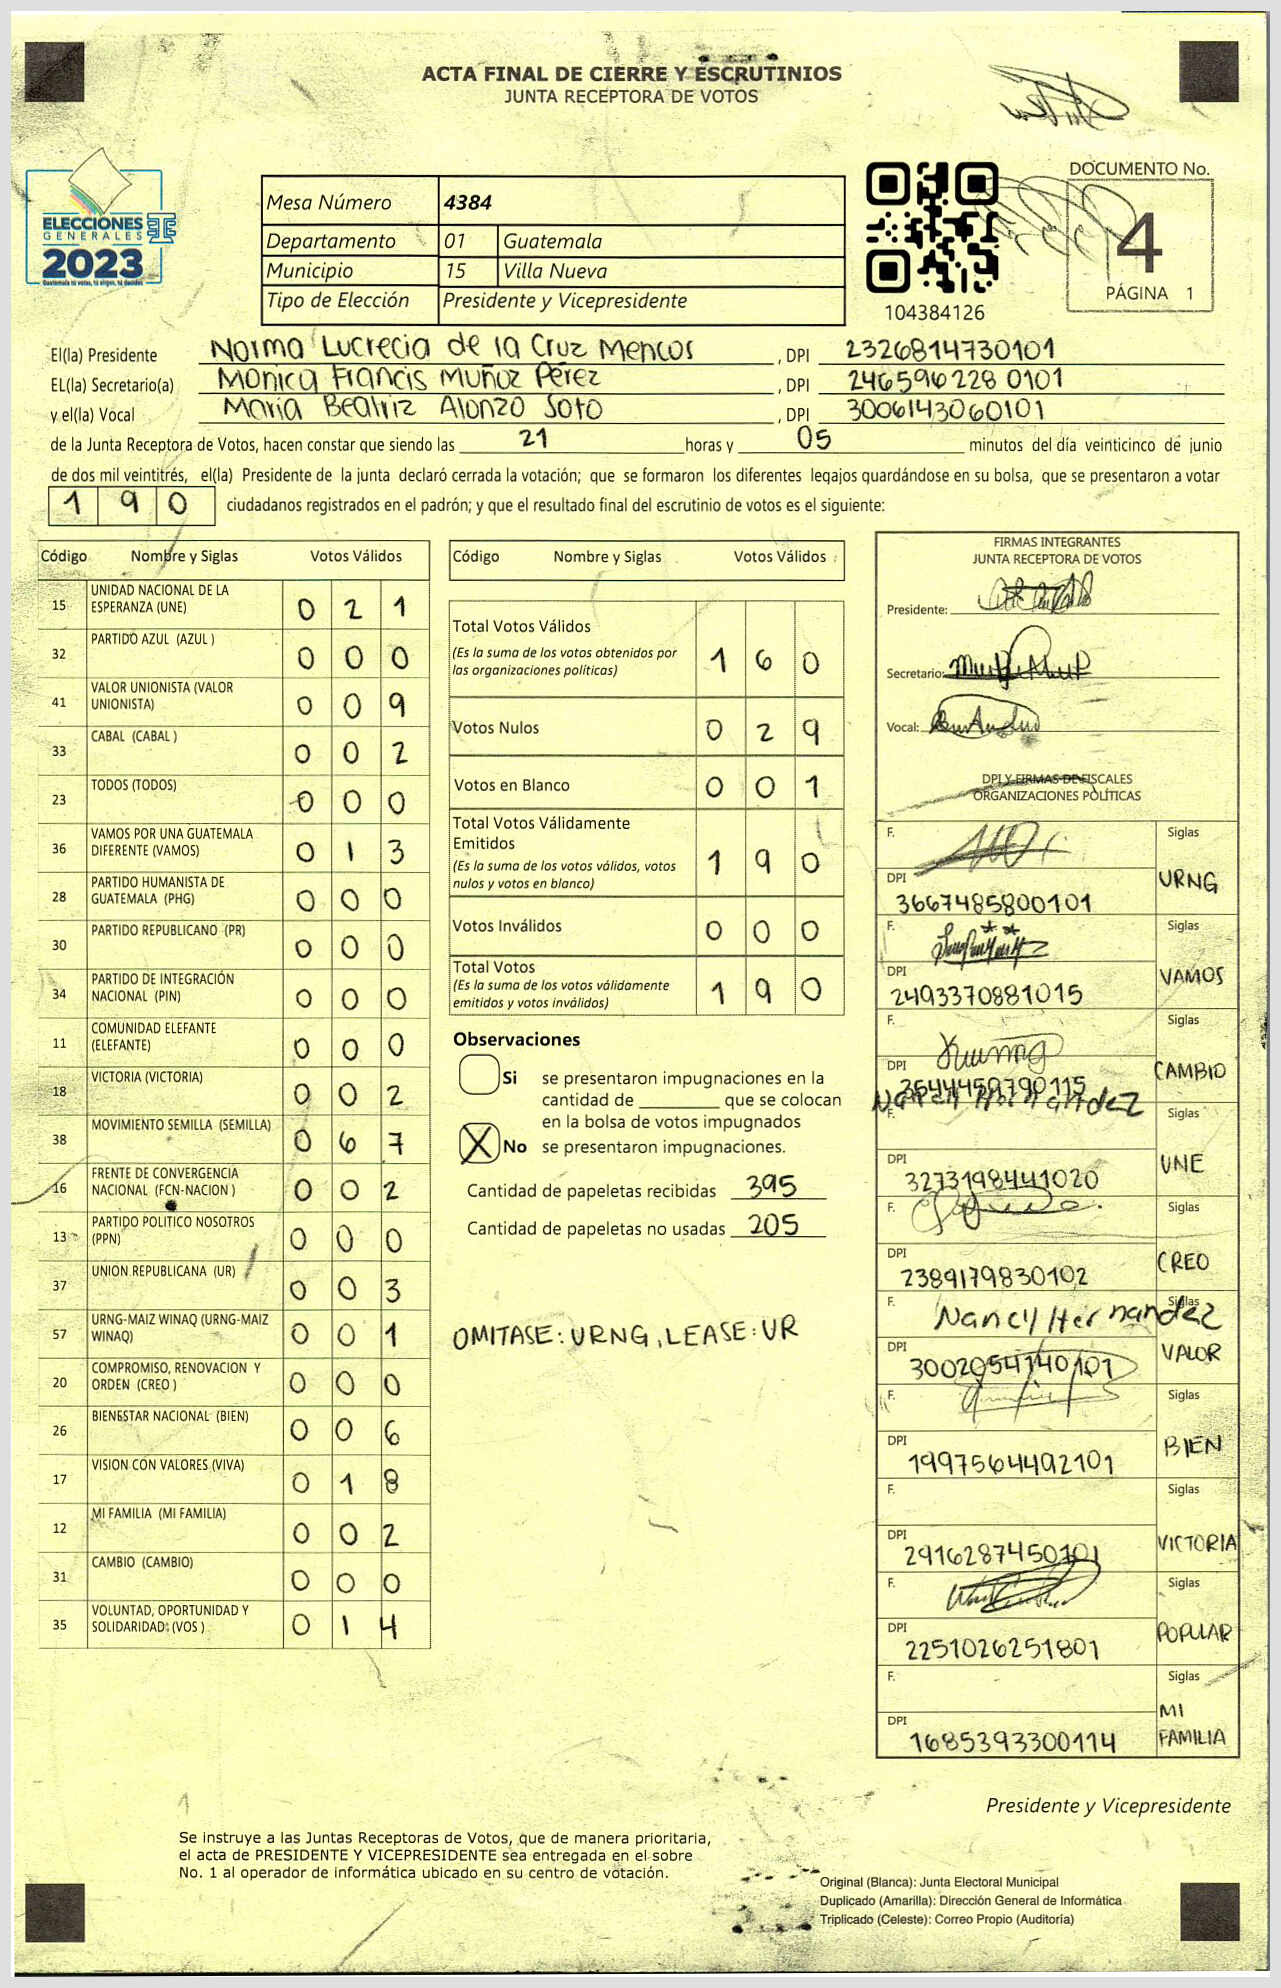 ACTA FINAL DE CIERRE Y ESCRUTINIOS
JUNTA RECEPTORA DE VOTOS
ELECCIONES
GENERALES
2023
Guatemala tú votas, tú eliges, tú decides
Mesa Número 4384
Departamento 01 Guatemala
Municipio 15 Villa Nueva
Tipo de Elección Presidente y Vicepresidente
104384126
DOCUMENTO No.
4
PÁGINA 1
El(la) Presidente Norma Lucrecia de la Cruz Mencos , DPI 2326814730101
EL(la) Secretario(a) Monica Francis Muñoz Pérez , DPI 2465962280101
y el(la) Vocal Maria Beatriz Alonzo Soto , DPI 3006143060101
de la Junta Receptora de Votos, hacen constar que siendo las 21 horas y 05 minutos del día veinticinco de junio
de dos mil veintitrés, el(la) Presidente de la junta declaró cerrada la votación; que se formaron los diferentes legajos guardándose en su bolsa, que se presentaron a votar
190 ciudadanos registrados en el padrón; y que el resultado final del escrutinio de votos es el siguiente:
Código Nombre y Siglas Votos Válidos
15 UNIDAD NACIONAL DE LA ESPERANZA (UNE) 0 2 1
32 PARTIDO AZUL (AZUL ) 0 0 0
41 VALOR UNIONISTA (VALOR UNIONISTA) 0 0 9
33 CABAL (CABAL ) 0 0 2
23 TODOS (TODOS) 0 0 0
36 VAMOS POR UNA GUATEMALA DIFERENTE (VAMOS) 0 1 3
28 PARTIDO HUMANISTA DE GUATEMALA (PHG) 0 0 0
30 PARTIDO REPUBLICANO (PR) 0 0 0
34 PARTIDO DE INTEGRACIÓN NACIONAL (PIN) 0 0 0
11 COMUNIDAD ELEFANTE (ELEFANTE) 0 0 0
18 VICTORIA (VICTORIA) 0 0 2
38 MOVIMIENTO SEMILLA (SEMILLA) 0 6 7
16 FRENTE DE CONVERGENCIA NACIONAL (FCN-NACION ) 0 0 2
13 PARTIDO POLITICO NOSOTROS (PPN) 0 0 0
37 UNION REPUBLICANA (UR) 0 0 3
57 URNG-MAIZ WINAQ (URNG-MAIZ WINAQ) 0 0 1
20 COMPROMISO, RENOVACION Y ORDEN (CREO ) 0 0 0
26 BIENESTAR NACIONAL (BIEN) 0 0 6
17 VISION CON VALORES (VIVA) 0 1 8
12 MI FAMILIA (MI FAMILIA) 0 0 2
31 CAMBIO (CAMBIO) 0 0 0
35 VOLUNTAD, OPORTUNIDAD Y SOLIDARIDAD (VOS ) 0 1 4
Código Nombre y Siglas Votos Válidos
Total Votos Válidos 1 6 0
(Es la suma de los votos obtenidos por
las organizaciones políticas)
Votos Nulos 0 2 9
Votos en Blanco 0 0 1
Total Votos Válidamente
Emitidos 1 9 0
(Es la suma de los votos válidos, votos
nulos y votos en blanco)
Votos Inválidos 0 0 0
Total Votos 1 9 0
(Es la suma de los votos válidamente
emitidos y votos inválidos)
Observaciones
Si se presentaron impugnaciones en la
cantidad de ________ que se colocan
en la bolsa de votos impugnados
X No se presentaron impugnaciones.
Cantidad de papeletas recibidas 395
Cantidad de papeletas no usadas 205
OMITASE: URNG, LEASE: UR
FIRMAS INTEGRANTES
JUNTA RECEPTORA DE VOTOS
Presidente:
Secretario:
Vocal:
DPI Y FIRMAS DE FISCALES
ORGANIZACIONES POLÍTICAS
F. Siglas
DPI 3667485800101 URNG
F. Siglas
DPI 2493370881015 VAMOS
F. Siglas
DPI 3544459790115 CAMBIO
Nancy Hernandez
F. Siglas
DPI 3273198441020 UNE
F. Siglas
DPI 2389179830102 CREO
F. Nancy Hernandez Siglas
DPI 3002054140101 VALOR
F. Siglas
DPI 1997564492101 BIEN
F. Siglas
DPI 2916287450101 VICTORIA
F. Siglas
DPI 2251026251801 POPULAR
F. Siglas
DPI 1685393300114 MI FAMILIA
Presidente y Vicepresidente
Se instruye a las Juntas Receptoras de Votos, que de manera prioritaria,
el acta de PRESIDENTE Y VICEPRESIDENTE sea entregada en el sobre
No. 1 al operador de informática ubicado en su centro de votación.
Original (Blanca): Junta Electoral Municipal
Duplicado (Amarilla): Dirección General de Informática
Triplicado (Celeste): Correo Propio (Auditoría)